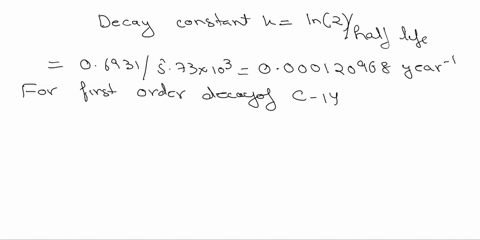 Decay constant k = ln(2)/half life
= 0.6931/5.73x10³ = 0.000120968 year⁻¹
For first order decay of C-14